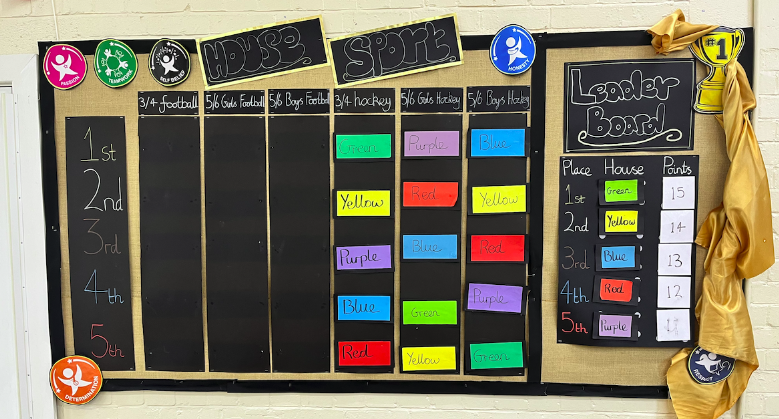 PASSION
TEAMWORK
SELF BELIEF
HOUSE Sport
HONESTY
#1
3/4 football 5/6 Girls Football 5/6 Boys Football 3/4 hockey 5/6 Girls Hockey 5/6 Boys Hockey
1st Green Purple Blue
2nd Yellow Red Yellow
3rd Purple Blue Red
4th Blue Green Purple
5th Red Yellow Green
DETERMINATION
Leader
Board
Place House Points
1st Green 15
2nd Yellow 14
3rd Blue 13
4th Red
5th Purple
RESPECT